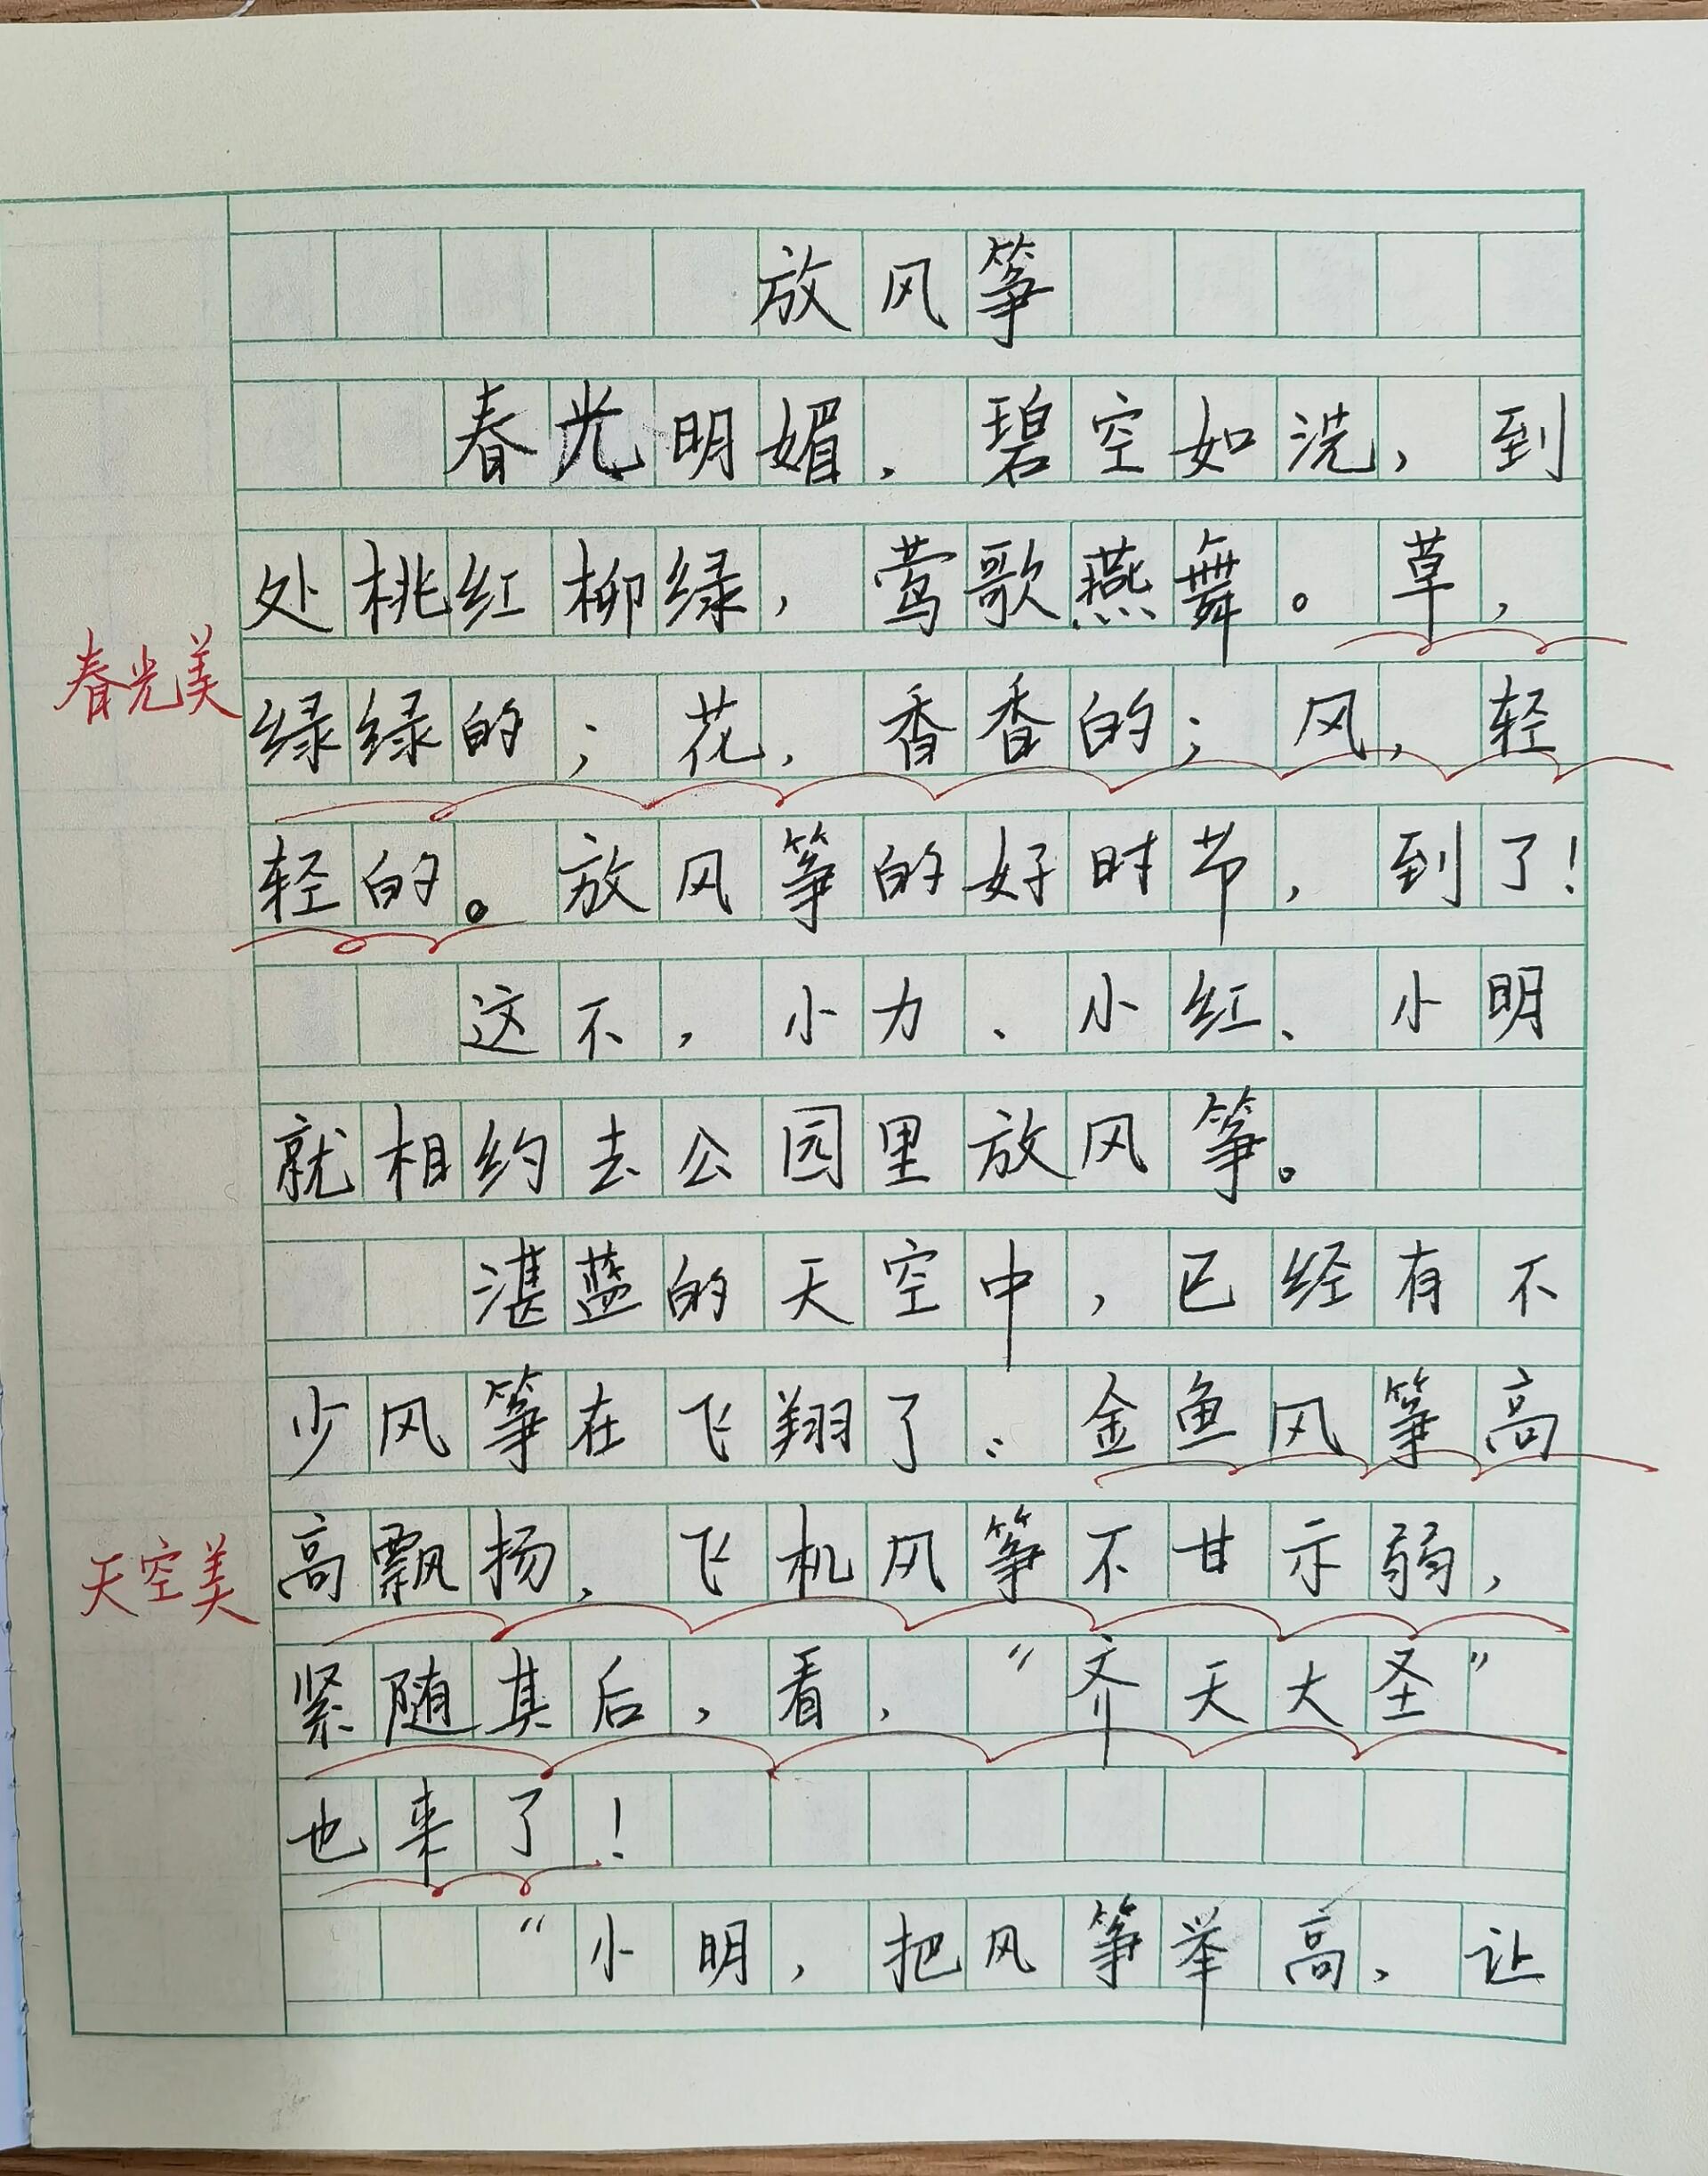 放风筝
春光明媚，碧空如洗，到
处桃红柳绿，莺歌燕舞。草，
春光美
绿绿的；花，香香的；风，轻
轻的。放风筝的好时节，到了！
这不，小力、小红、小明
就相约去公园里放风筝。
湛蓝的天空中，已经有不
少风筝在飞翔了：金鱼风筝高
天空美
高飘扬，飞机风筝不甘示弱，
紧随其后，看，“齐天大圣”
也来了！
“小明，把风筝举高，让